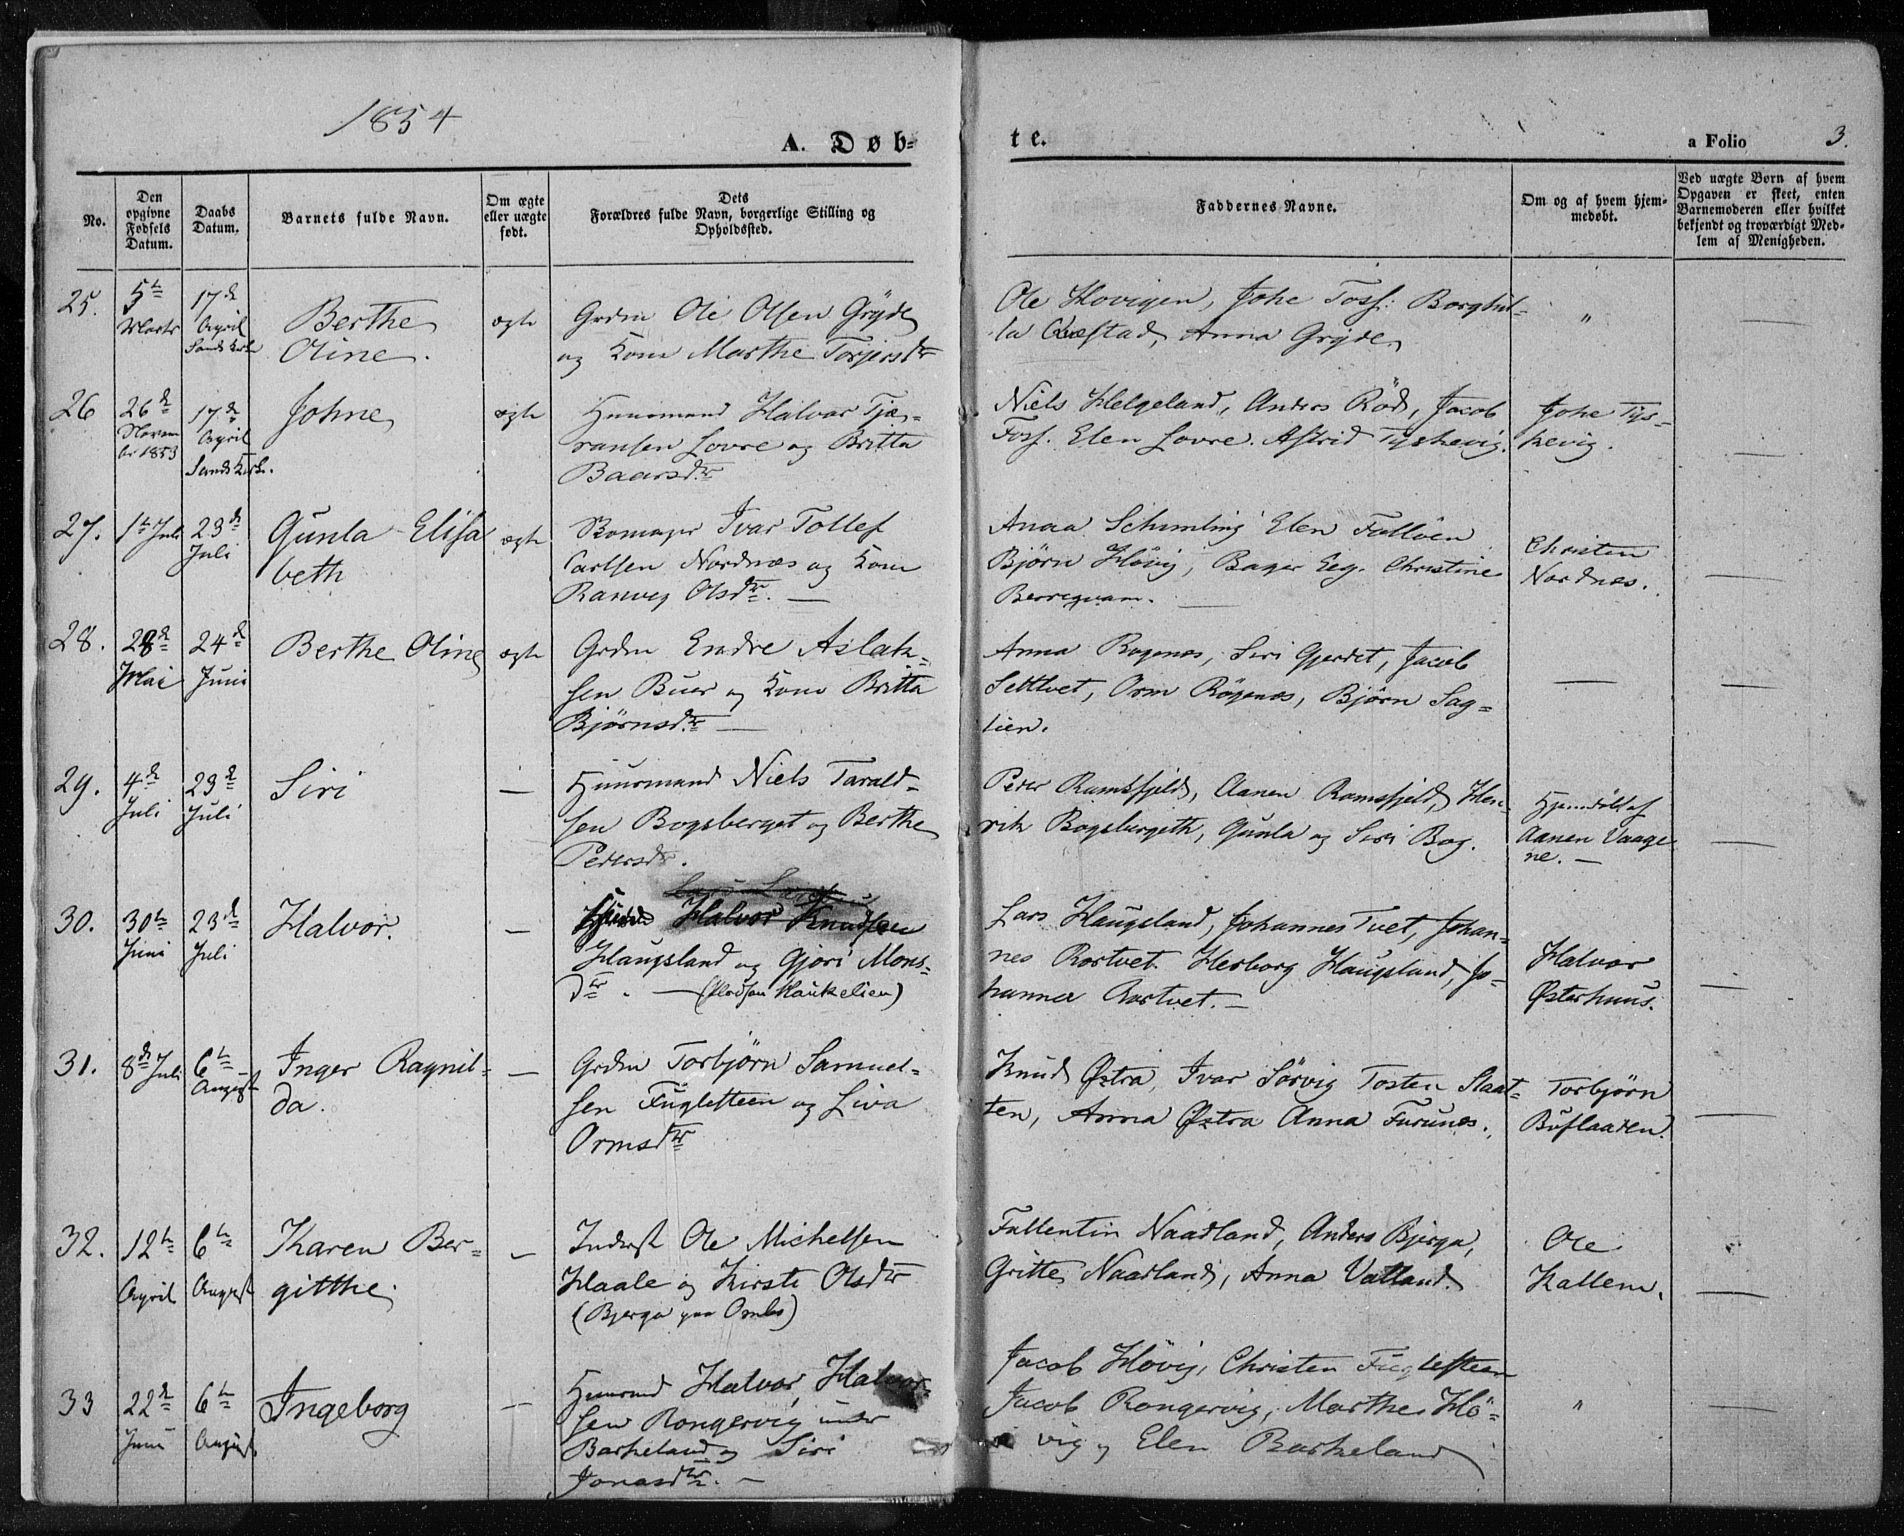 1854
A. Døb-
te.
a Folio
3.
No.
Den opgivne Fødsels Datum.
Daabs Datum.
Barnets fulde Navn.
Om ægte eller uægte født.
Dets Forældres fulde Navn, borgerlige Stilling og Opholdssted.
Faddernes Navne.
Om og af hvem hjem-
medøbt.
Ved uægte Børn af hvem Opgaven er skeet, enten Barnemoderen eller hvilket bekjendt og troværdigt Med-
lem af Menigheden.
25.
5te Marts
17de April Sands Kirke
Berthe
Oline.
ægte
Grdm Ole Olsen Gryde
og Kone Marthe Torjersdtr
Ole Hovigen, Johe Foss. Borghil-
la Qvæstad, Anna Gryde
"
26
26de Novem
br 1853
17de April Sands Kirke.
Johne
ægte
Huusmand Halvor Tjæ-
ransen Lovre og Britta
Baarsdtr
Niels Helgeland, Anders Röd, Jacob
Foss. Elen Lovre. Astrid Tyshevig.
Johe Tys-
hevig.
27.
1te Juli
23de Juli
Gunla Elisa
beth
ægte
Skomager Ivar Tollef
Carlsen Nordnæs og Kone
Ranveg Olsdtr. —
Anna Schmling Elen Fattöen
Björn Hövig, Bager Eeg. Christine
Berreqvam. —
Christen
Nordnæs.
28.
28de Mai
24de Juni
Berthe Oline
ægte
Grdm Endre Aslak-
sen Buer og Kone Britta
Björnsdtr. —
Anna Rogenæs, Siri Gjerdet, Jacob
Settvet, Orm Rögenæs, Björn Sag-
lien.
29.
4de Juli
23de Juli
Siri
—
Huusmand Niels Tarald-
sen Bogsberget og Berthe
Pedersdtr.
Peder Ramsfjeld, Aanen Ramsfjeld, Hen-
rik Bogsbergeth, Gunla og Siri Bog.
Hjemdöbt af
Aanen Vaage
ne. —
30.
30te Juni
23de Juli
Halvor.
—
Halvor Knudsen
Haugsland og Gjöri Mons-
dtr. — (Pladsen Haukelien)
Lars Haugsland, Johannes Tvet, Johan-
nes Rostvet. Herborg Haugsland, Jo-
hanne Rostvet. —
Halvor
Østerhuus.
31.
8de Juli
6te August
Inger Ragnil-
da.
—
Grdm Torbjörn Samuel-
sen Fuglesteen og Siva
Ormsdtr
Knud Østra, Ivar Sörvig Tosten Slaat-
ten, Anna Østra Anna Furunes.
Torbjörn
Buflaaden.
32.
12te April
6te August
Karen Ber-
gitthe.
—
Inderst Ole Michelsen
Haale og Kirsti Olsdtr
(Bjerga paa Ombo)
Fallentin Naadland, Anders Bjerga,
Gritte Naadland, Anna Vatland
Ole
Kallem.
33
22de Juni
6te August.
Ingeborg
—
Huusmand Halvor Halvor-
sen Rongervig under
Barkeland og Siri
Jonasdtr. —
Jacob Hövig, Christen Fuglesteen
Jacob Rongervig, Marthe Hö-
vig og Elen Barkeland
"